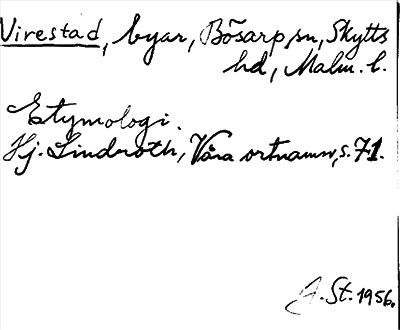 Virestad, byar, Bösarp sn, Skytts
hd, Malm. l.
Etymologi.
Hj. Lindroth, Våra ortnamn, s. 71.
A. St. 1956.